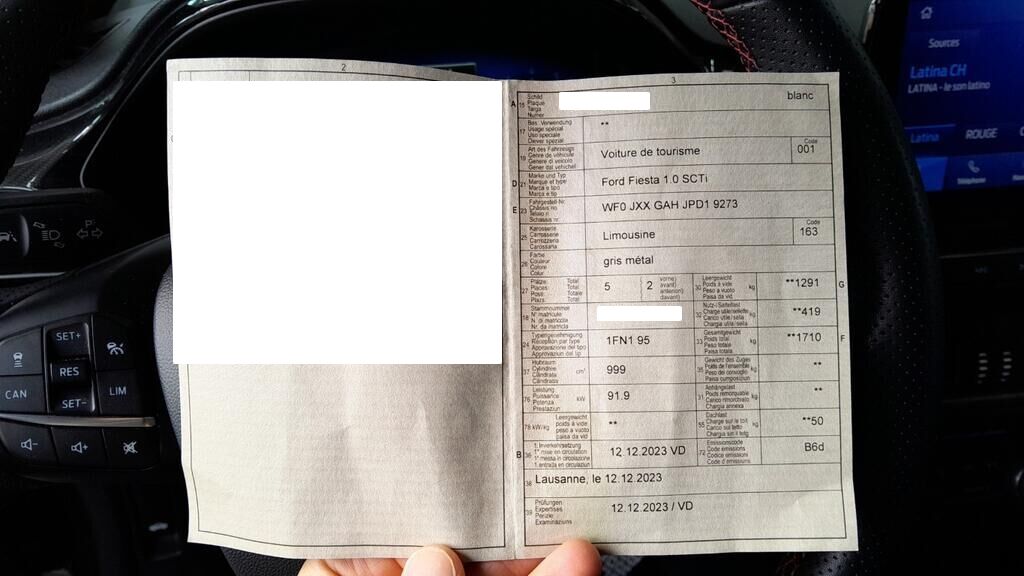 2
3
A 15 Schild
Plaque
Targa
Numer
blanc
17 Bes. Verwendung
Usage spécial
Uso speciale
Diever spezial
**
19 Art des Fahrzeugs
Genre de véhicule
Genere di veicolo
Gener dal vehichel
Voiture de tourisme
Code
001
D 21 Marke und Typ
Marque et type
Marca e tipo
Marca e tip
Ford Fiesta 1.0 SCTi
E 23 Fahrgestell-Nr.
Châssis no
Telaio n.
Schassis nr.
WF0 JXX GAH JPD1 9273
25 Karosserie
Carrosserie
Carrozzeria
Carossaria
Limousine
Code
163
26 Farbe
Couleur
Colore
Colur
gris métal
27 Plätze Total
Places Total
Posti Totale
Plazs Total
5
2
vorne)
avant)
anteriori)
davant)
30 Leergewicht
Poids à vide
Peso a vuoto
Paisa da vid
kg
**1291
G
18 Stammnummer
N° matricule
N. di matricola
Nr. da matricla
32 Nutz-/Sattellast
Charge utile/sellette
Carico utile/sella
Chargia utila/sella
kg
**419
24 Typengenehmigung
Réception par type
Approvazione del tipo
Approvaziun dal tip
1FN1 95
33 Gesamtgewicht
Poids total
Peso totale
Paisa totala
kg
**1710
F
37 Hubraum
Cylindrée
Cilindrata
Cilindrada
cm³
999
35 Gewicht des Zuges
Poids de l'ensemble
Peso del convoglio
Paisa cumposiziun
kg
**
76 Leistung
Puissance
Potenza
Prestaziun
kW
91.9
31 Anhängelast
Poids remorquable
Carico rimorchiato
Chargia annexa
kg
**
78 kW/kg
Leergewicht
poids à vide
peso a vuoto
paisa da vid
**
55 Dachlast
Charge sur le toit
Carico sul tetto
Chargia sin il tetg
kg
**50
B 36 1. Inverkehrsetzung
1re mise en circulation
1a messa in circolazione
1. entrada en circulaziun
12.12.2023 VD
72 Emissionscode
Code émissions
Codice emissioni
Code d'emissiuns
B6d
38 Lausanne, le 12.12.2023
39 Prüfungen
Expertises
Perizie
Examinaziuns
12.12.2023 / VD
SET+
RES
SET-
CAN
LIM
Sources
Latina CH
LATINA - le son latino
Latina
ROUGE
Téléphone